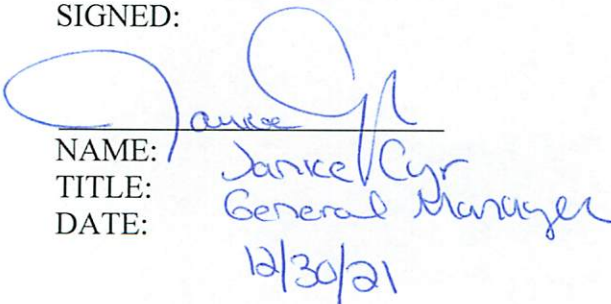 SIGNED:
Janice Cyr
NAME: Janice Cyr
TITLE: General Manager
DATE: 12/30/21